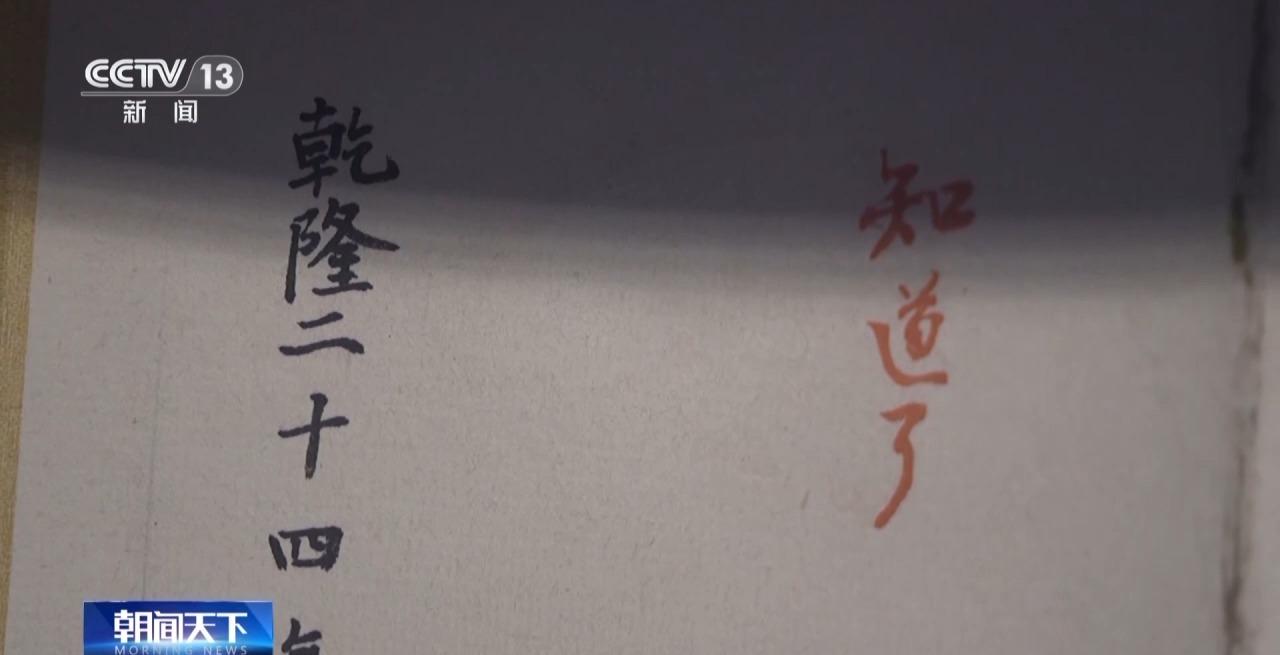 CCTV 13
新闻
知道了
乾隆二十四年
朝闻天下
MORNING NEWS